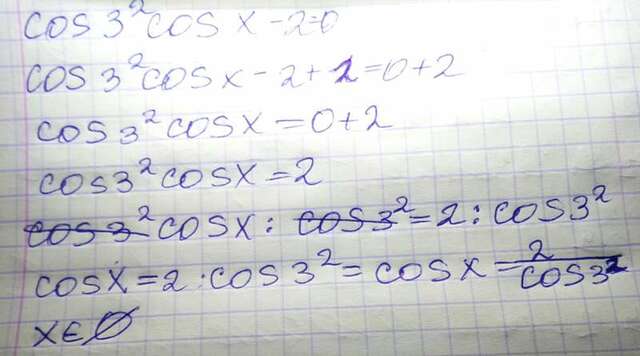 cos 3² cos x - 2=0
cos 3² cos x - 2 + 2 = 0+2
cos 3² cos x = 0+2
cos 3² cos x = 2
cos 3² cos x : cos 3² = 2 : cos 3²
cos x = 2 : cos 3² = cos x = 2/cos 3²
x ∈ ∅